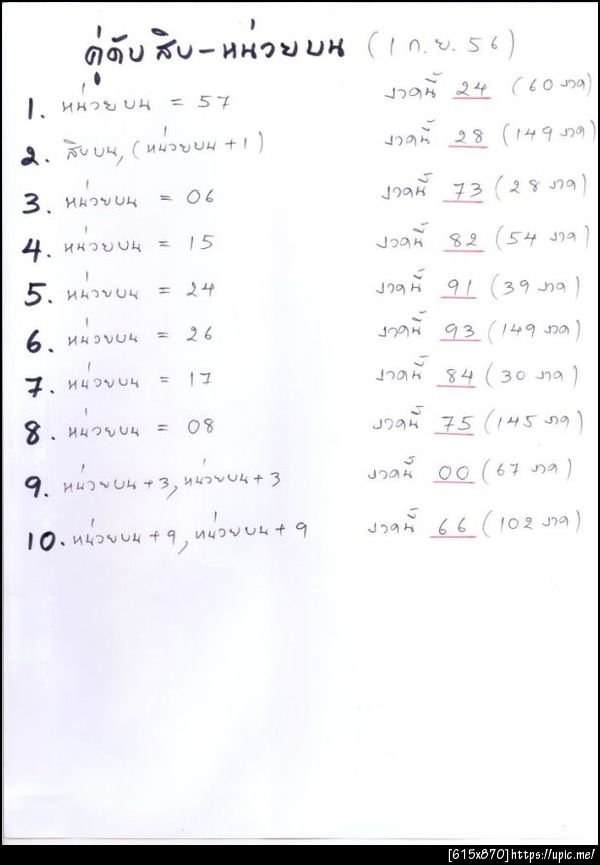 คู่ดับ สิบ-หน่วยบน (1 ก.ย. 56)
1. หน่วยบน = 57 งวดนี้ 24 (60 งวด)
2. สิบบน, (หน่วยบน+1) งวดนี้ 28 (149 งวด)
3. หน่วยบน = 06 งวดนี้ 73 (28 งวด)
4. หน่วยบน = 15 งวดนี้ 82 (54 งวด)
5. หน่วยบน = 24 งวดนี้ 91 (39 งวด)
6. หน่วยบน = 26 งวดนี้ 93 (149 งวด)
7. หน่วยบน = 17 งวดนี้ 84 (30 งวด)
8. หน่วยบน = 08 งวดนี้ 75 (145 งวด)
9. หน่วยบน+3, หน่วยบน+3 งวดนี้ 00 (67 งวด)
10. หน่วยบน+9, หน่วยบน+9 งวดนี้ 66 (102 งวด)
[615x870]https://upic.me/